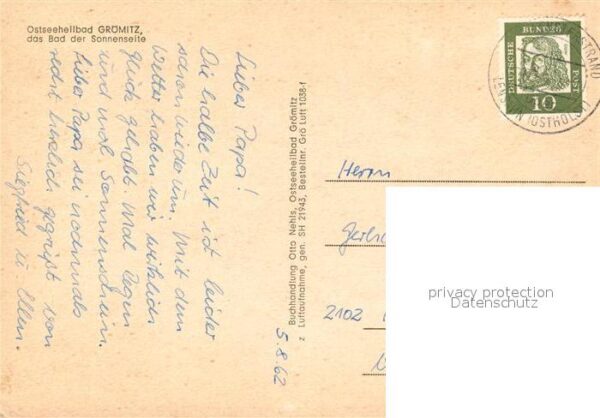 Ostseeheilbad GRÖMITZ,
das Bad der Sonnenseite
Lieber Papa!
Die halbe Zeit ist leider
schon wieder um. Mit dem
Wetter haben wir wirklich
Glück gehabt. Mal Regen
und mal Sonnenschein.
Lieber Papa sei nochmals
recht herzlich gegrüßt von
Siegfried u. Ellen.
5.8.62
Buchhandlung Otto Nehls, Ostseeheilbad Grömitz
z Luftaufnahme, gen. SH 21943, Bestellnr. Grö Luft 1038-f
DEUTSCHE
BUNDES
POST
10
STRAND
(OSTHOLST
Herrn
2102
privacy protection
Datenschutz